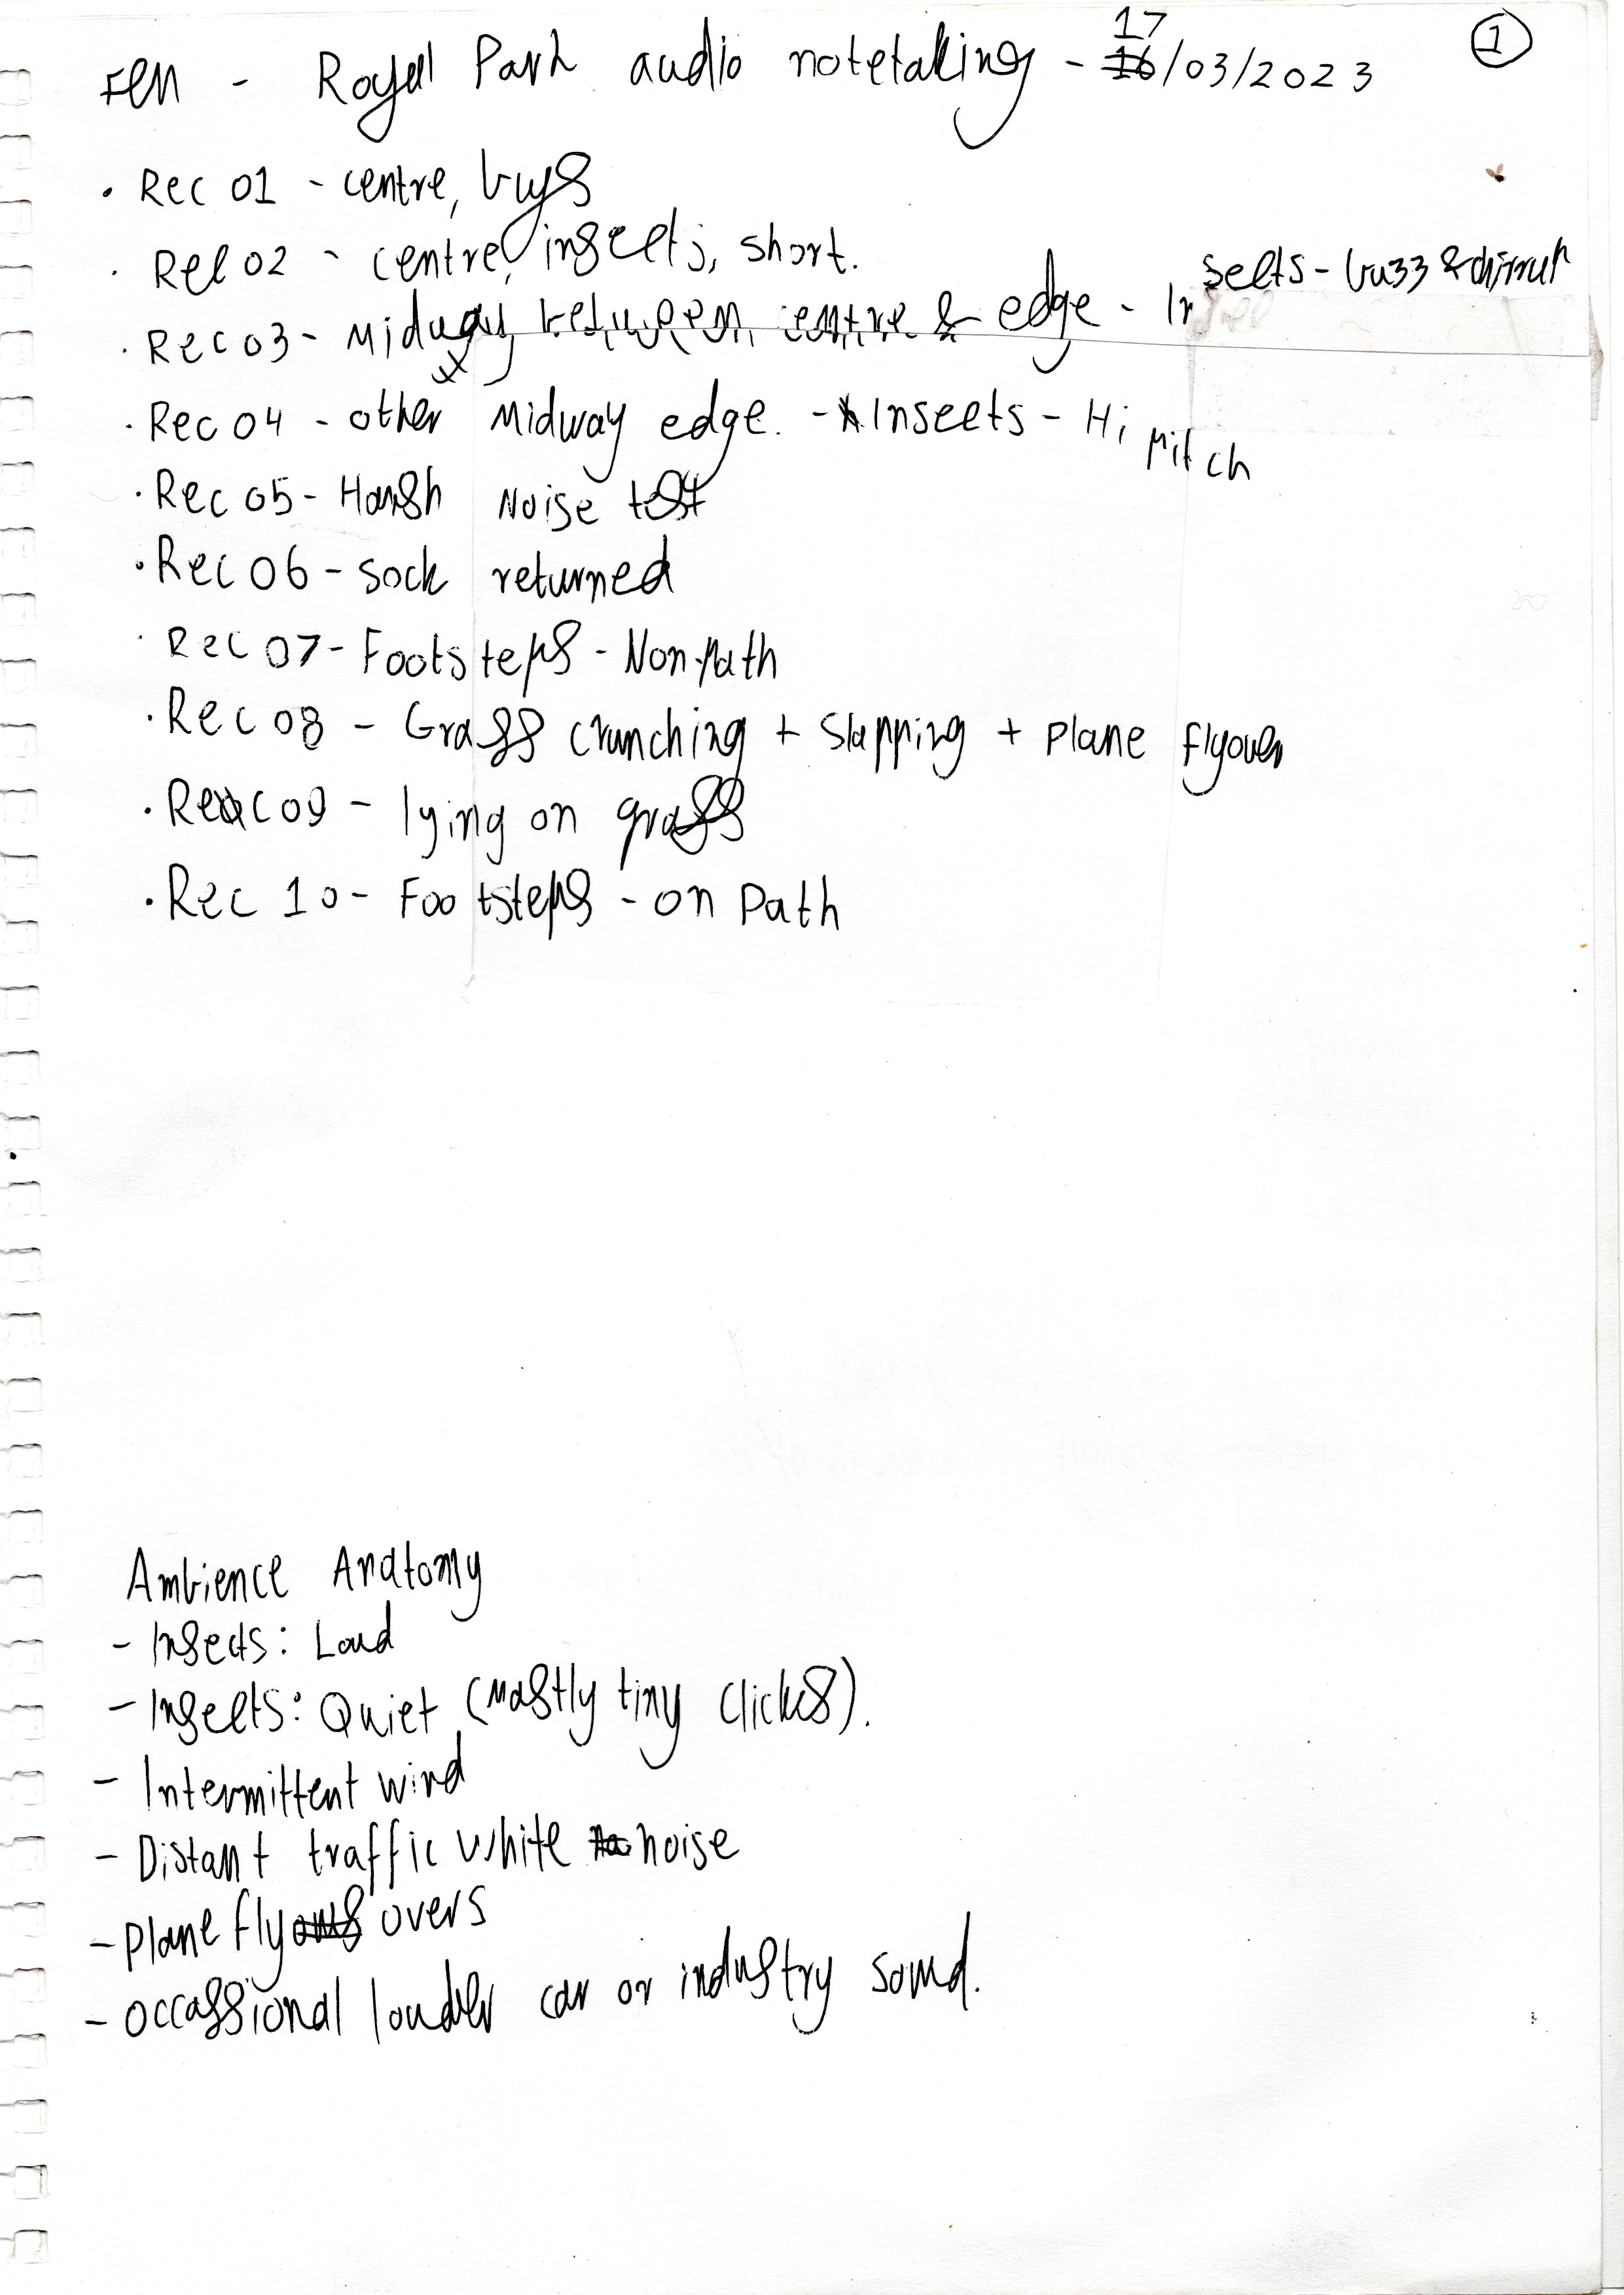 FEM - Royal Park audio notetaking - 17/03/2023
1
• Rec 01 - centre, bugs
• Rec 02 - centre, insects, short.
• Rec 03 - Midway between centre & edge - Insects - buzz & chirrup
• Rec 04 - other Midway edge. - Insects - Hi pitch
• Rec 05 - Harsh Noise test
• Rec 06 - sock returned
• Rec 07 - Footsteps - Non-path
• Rec 08 - Grass crunching + Slapping + Plane flyover
• Rec 09 - lying on grass
• Rec 10 - Footsteps - on Path
Ambience Anatomy
- Insects: Loud
- Insects: Quiet (Mostly tiny clicks).
- Intermittent wind
- Distant traffic white noise
- Plane fly overs
- Occassional louder car or industry sound.